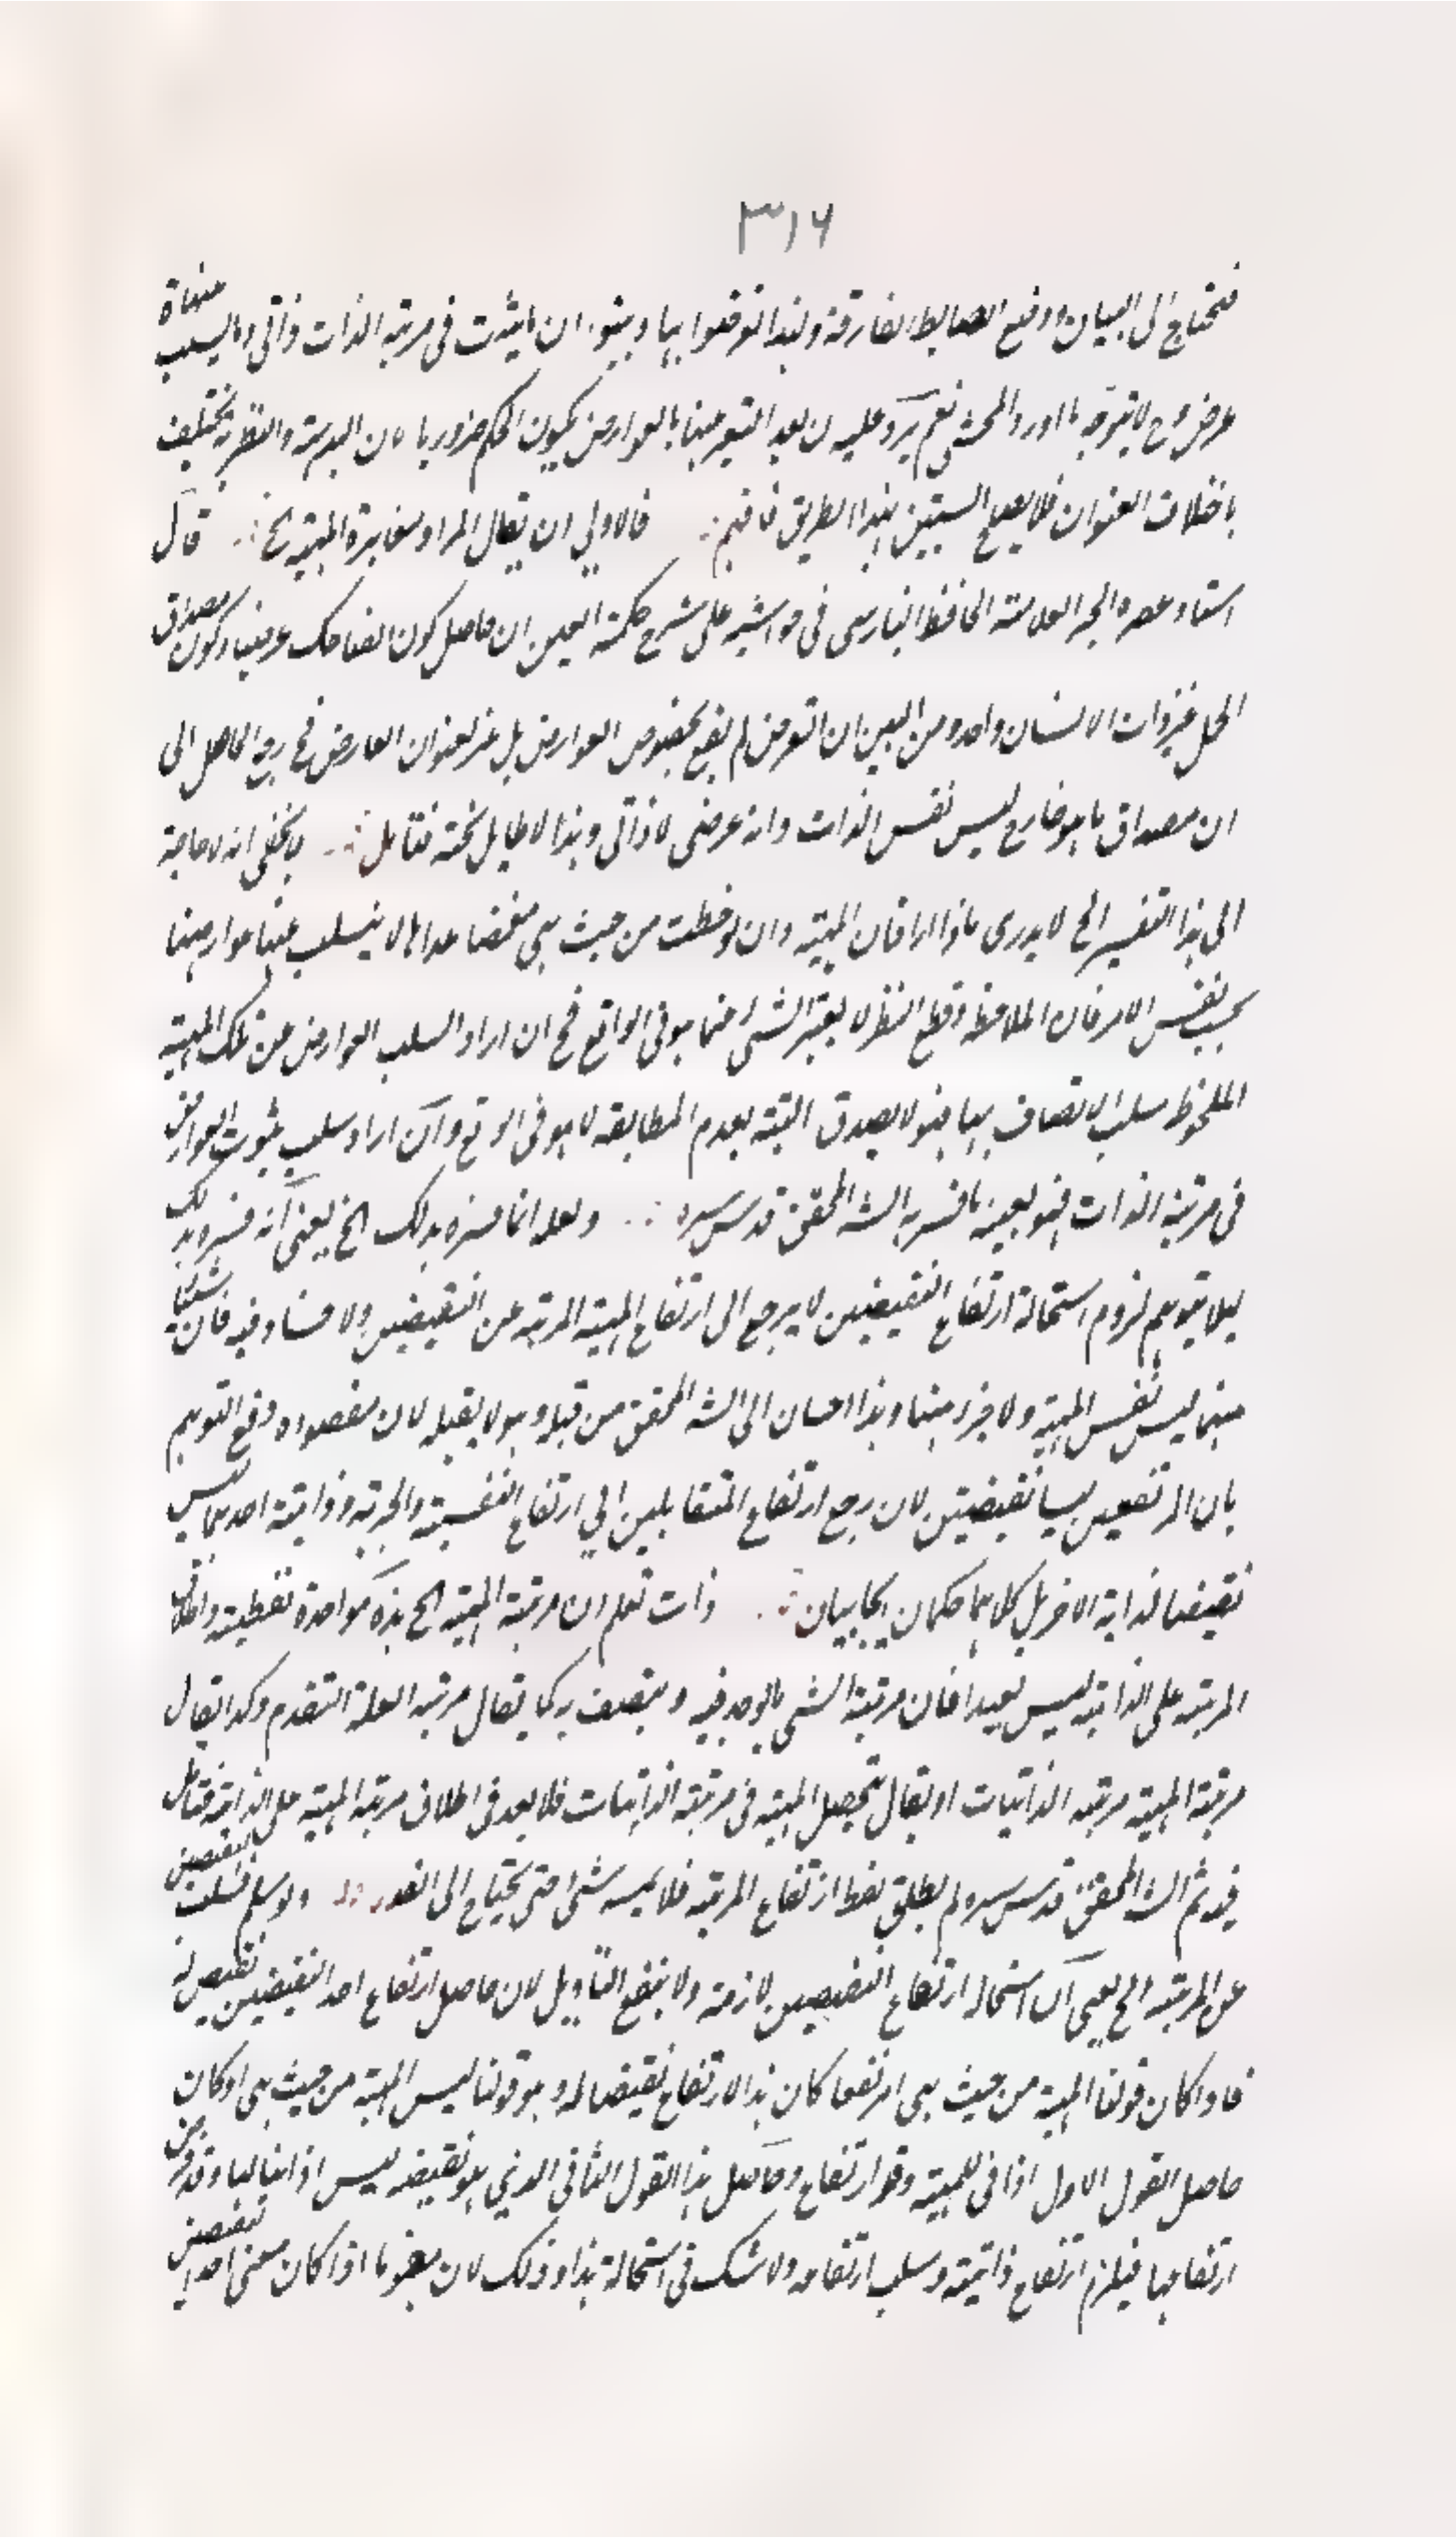 ٣١٦
فتحتاج الى البيان ووضع الضابطة الفارقة ولهذا توقفوا بها وبينوا ان ما يثبت فى مرتبة الذات ذاتى وما يسلب عنها فى
عرضى وح لا يتوجه ما اورد المحشى نعم يرد عليه ان بعد التعبير عنها بالعوارض يكون الحكم ضروريا لان البديهية والنظرية تختلف
باختلاف العنوان فلا يصح السبتين بهذا الطريق فافهم فالاولى ان يقال المراد مغايرة المهية الخ قال
استاد عصره الحبر العلامة الحافظ البنارسى فى حواشيه على شرح حكمة العين ان حاصل كون الضاحك عرضيا وكون مصداق
الحمل غير ذات الانسان واحد ومن البين ان التعرض لم يقع بخصوص العوارض بل عبر بعنوان العارض فح رجع الحاصل الى
ان مصداق ما هو خارج ليس نفس الذات وانه عرضى لا ذاتى وهذا لا طايل تحته فتامل لا يخفى انه لا حاجة
الى هذا التفسير الخ لا يدرى ماذا اراد فان المهية وان لوحظت من حيث هى مغمضا عداها لا ينسلب عنها عوارضها
بحسب نفس الامر فان الملاحظة وقطع النظر لا يغير الشئ عما هو فى الواقع فح ان اراد السلب العوارض عن تلك المهية
الملحوظة سلب الاتصاف بها فهو لا يصدق البتة لعدم المطابقة لما هو فى الواقع وان اراد سلب ثبوت العوارض
فى مرتبة الذات فهو بعينه ما فسر به الشه المحقق قدس سره ولعله انما فسره بذلك الخ يعنى انه فسره بذلك
ليلا يتوهم لزوم استحالة ارتفاع النقيضين لا يرجع الى ارتفاع المهية المرتبة عن النقيضين ولا فساد فيه فان شيئا
منهما ليس نفس المهية ولا جزء منها وهذا احسان الى الشه المحقق من قبله وهو لا يقبله لان مقصوده دفع التوهم
بان المرتفعين ليسا نقيضين لان رجع ارتفاع المتقابلين الى ارتفاع النفسية والجزئية وذاتية احدهما ليس
نقيضا لذاتية الاخر بل كلاهما حكمان ايجابيان وانت تعلم ان مرتبة المهية الخ هذه مواخذة لفظية واطلاق
المرتبة على الذاتية ليس بعيدا فان مرتبة الشى ما يوجد فيه ويتصف به كما يقال مرتبة العلة التقدم وكذا يقال
مرتبة المهية مرتبة الذاتيات او يقال تحصل المهية فى مرتبة الذاتيات فلا بعد فى اطلاق مرتبة المهية على الذاتية فتامل
فيه ثم الشه المحقق قدس سره لم يطلق لفظ ارتفاع المرتبة فلا يمسه شئ حتى يحتاج الى العذر ولو سلم فسلب النقيضين
عن المرتبة الخ يعنى ان استحالة ارتفاع النقيضين لازمة ولا ينفع التاويل لان حاصل ارتفاع احد النقيضين نقيض له
فاذا كان قولنا المهية من حيث هى ارتفعا كان هذا الارتفاع نقيضا له وهو قولنا ليس المهية من حيث هى او كان
حاصل القول الاول اذا فى للمهية وقد ارتفاع وحاصل هذا القول الثانى الذى هو نقيضه ليس اذا لها وقد فرض
ارتفاعها فيلزم ارتفاع ذاتيته وسلب ارتفاعه ولا شك فى استحالة هذا وذلك لان مفهوما اذا كان معنى احد النقيضين